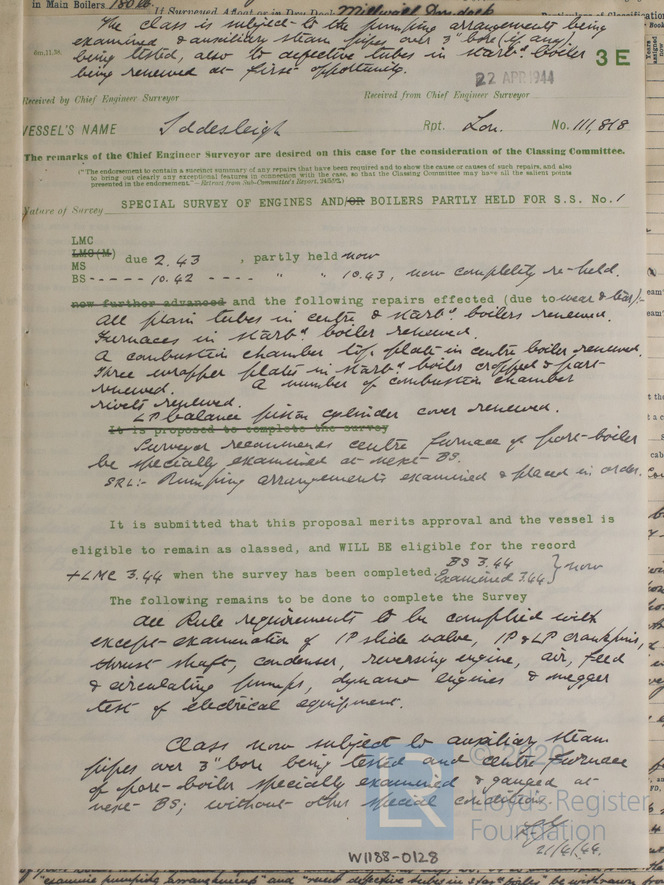 in Main Boilers 180 lb. If Surveyed Afloat or in Dry Dock Millwall Dry Dock
The class is subject to the pumping arrangements being
examined & auxiliary steam pipes over 3" bore (if any)
being tested, also to defective tubes in starbd boiler
being renewed at first opportunity.
6m,11,38.
3 E
22 APR 1944
Received by Chief Engineer Surveyor Received from Chief Engineer Surveyor
VESSEL'S NAME Iddesleigh Rpt. Lon. No. 111,818
The remarks of the Chief Engineer Surveyor are desired on this case for the consideration of the Classing Committee.
("The endorsement to contain a succinct summary of any repairs that have been required and to show the cause or causes of such repairs, and also
to bring out clearly any exceptional features in connection with the case, so that the Classing Committee may have all the salient points
presented in the endorsement."—Extract from Sub-Committee's Report,
Nature of Survey SPECIAL SURVEY OF ENGINES AND/OR BOILERS PARTLY HELD FOR S.S. No. 1
LMC
LMC(M) due 2.43 , partly held now
MS
BS ----- 10.42 ---- " " 10.43, now completely re-held.
now further advanced and the following repairs effected (due to wear & tear):-
All plain tubes in centre & starbd boilers renewed.
Furnaces in starbd boiler renewed.
A combustion chamber top plate in centre boiler renewed.
Three wrapper plates in starbd boiler cropped & part
renewed. A number of combustion chamber
rivets renewed.
LP balance piston cylinder cover renewed.
It is proposed to complete the survey
Surveyor recommends centre furnace of port boiler
be specially examined at next BS.
SRL:- Pumping arrangements examined & placed in order.
It is submitted that this proposal merits approval and the vessel is
eligible to remain as classed, and WILL BE eligible for the record
+LMC 3.44 when the survey has been completed. BS 3.44
Examined 3.44 } now
The following remains to be done to complete the Survey
All Rule requirements to be complied with
except examination of IP slide valve, IP & LP crankpins,
thrust shaft, condenser, reversing engine, air, feed
& circulating pumps, dynamo engines & megger
test of electrical equipment.
Class now subject to auxiliary steam
pipes over 3" bore being tested and centre furnace
of port boiler specially examined & gauged at
next BS; without other special condition.
21/4/44.
© 2020
Lloyd's Register
Foundation
LR
W1188-0128
"examine pumping arrangements" and "renew defective tubes in starbd boiler" be withdrawn